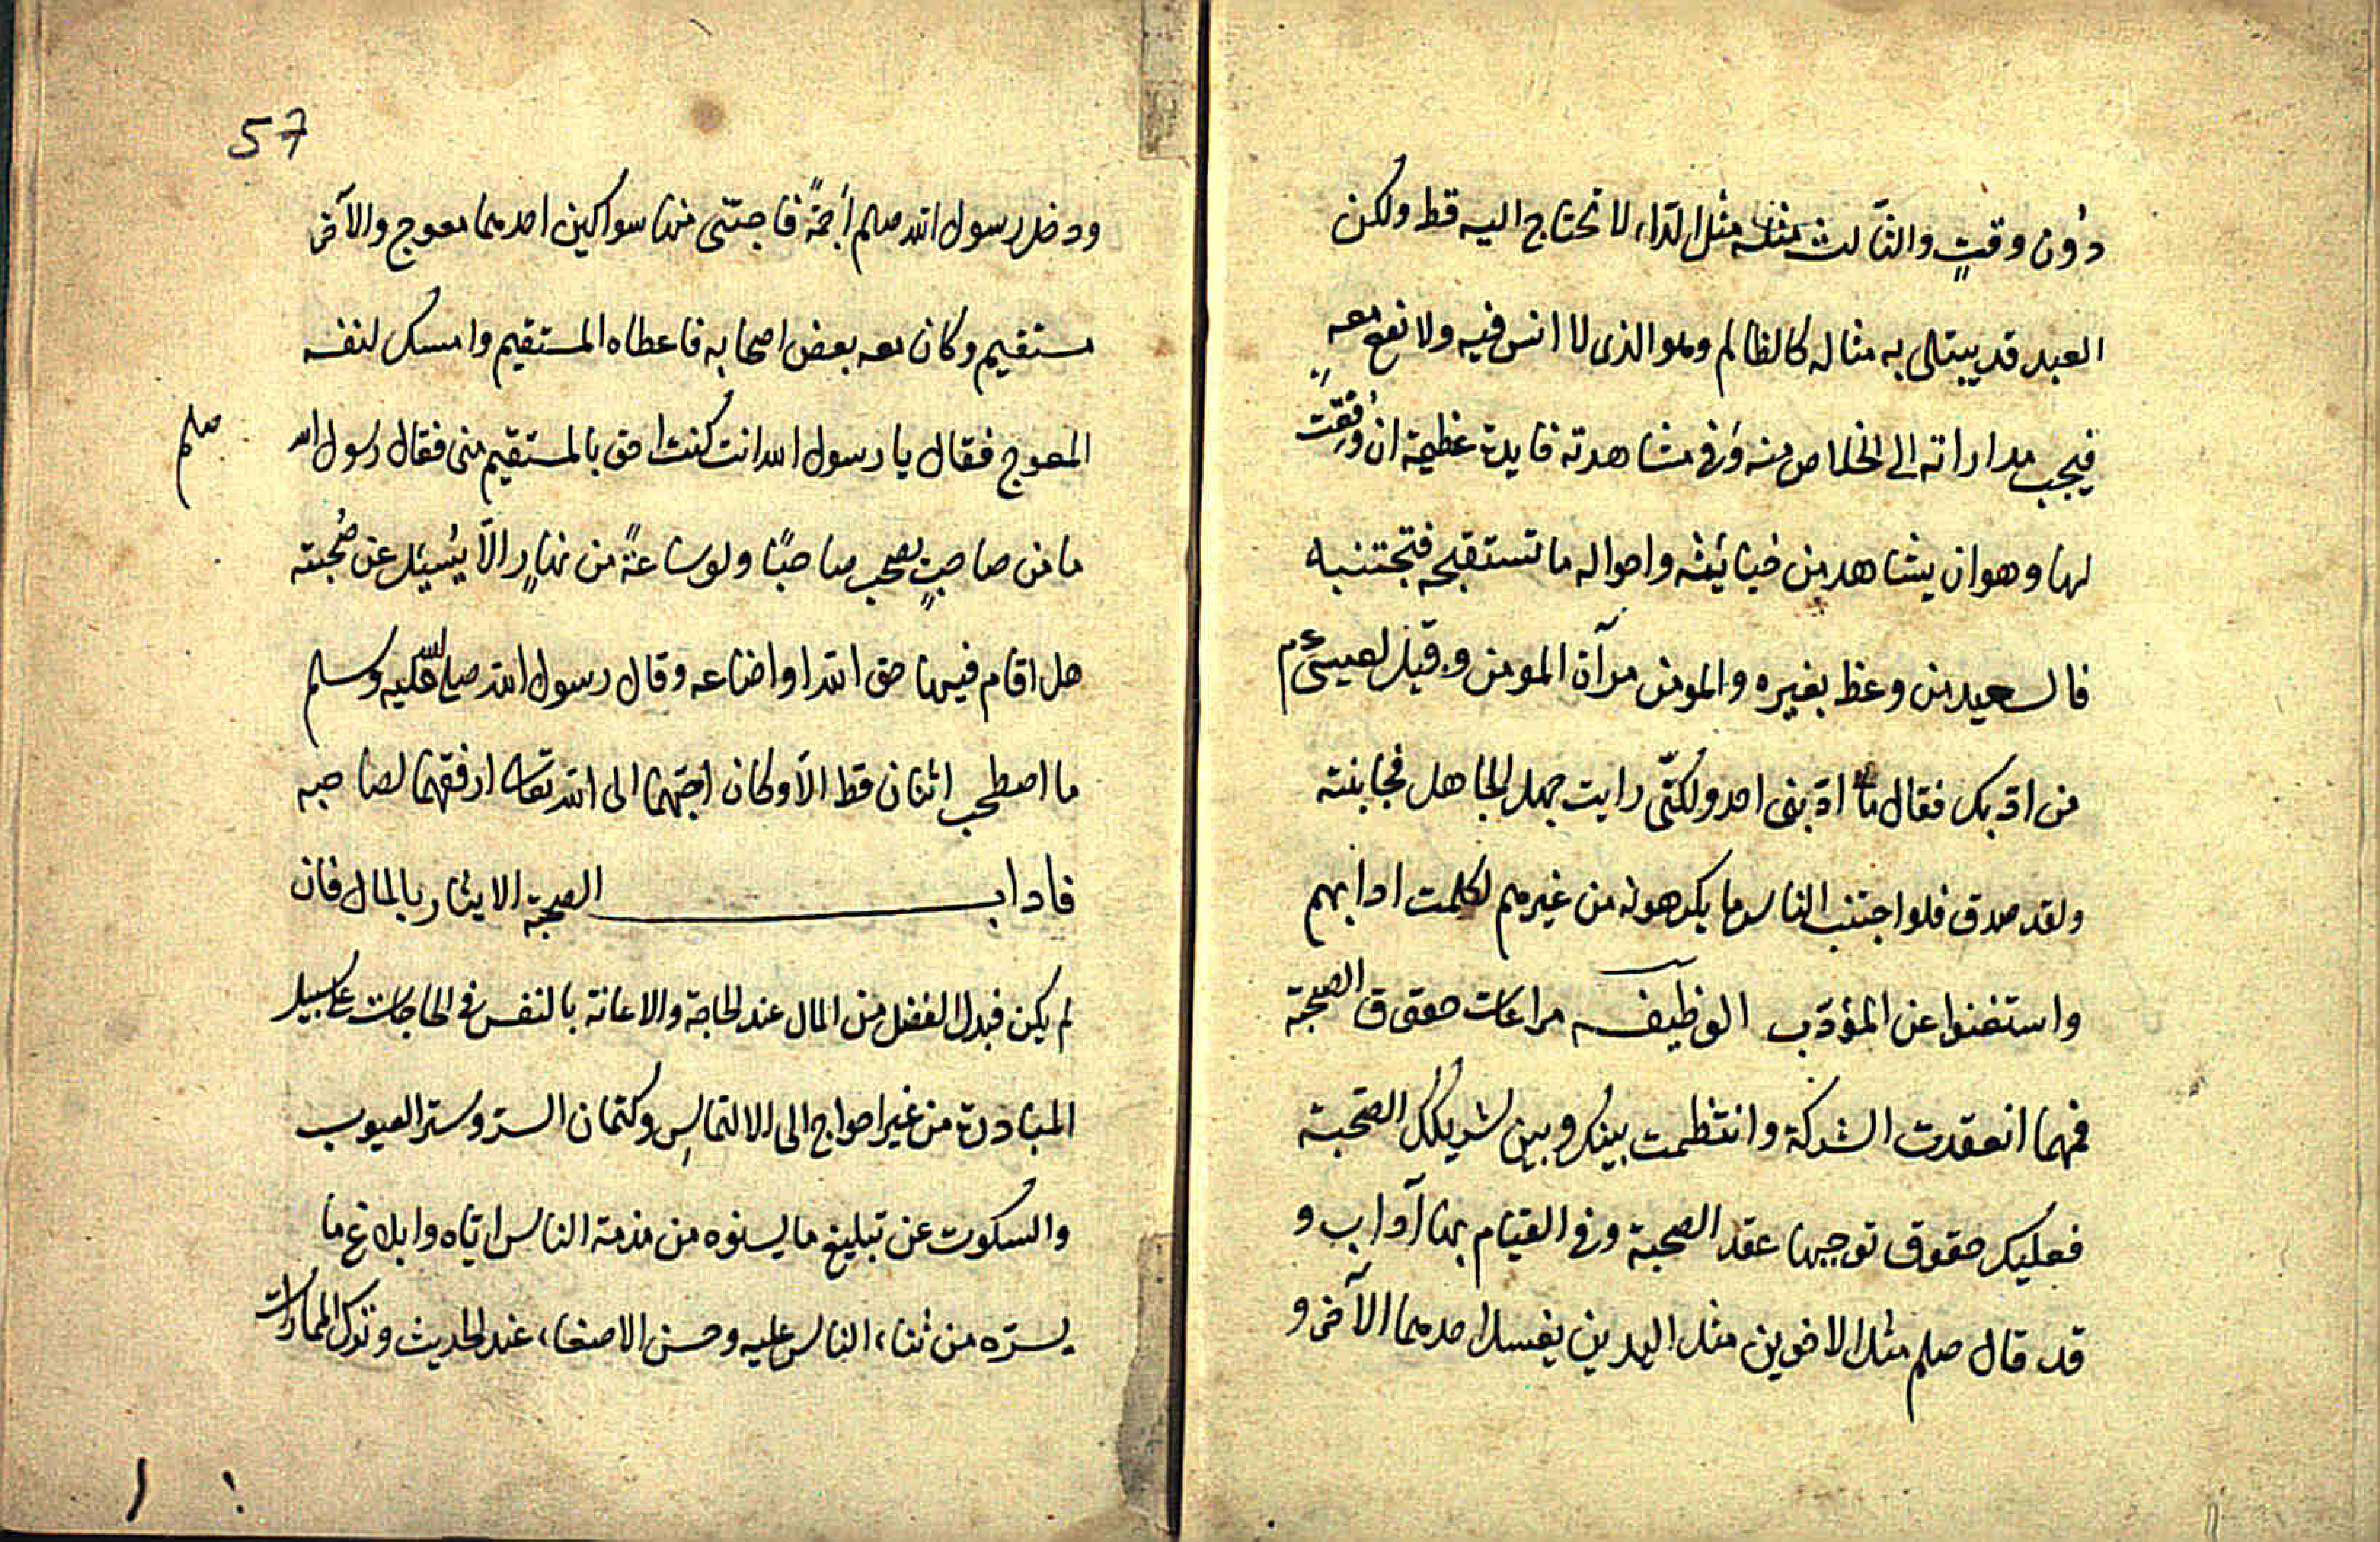 دُون وقتٍ والثالث مثله مثل الدّاء لا تحتاج اليه قط ولكن
العبد قد يبتلى به مثاله كالظالم وهو الذى لا انس فيه ولا نفع معه
فيجب مداراته الى الخلاص منه وفى مشاهدته فايدة عظيمة ان وُفِّقت
لها وهو ان يشاهد من خبائثه واحواله ما تستقبحه فتجتنبه
فالسعيد من وعظ بغيره والمومن مرآة المومن وقيل لعيسى ءم
من ادّبك فقال ما ادّبنى احد ولكنّى رايت جهل الجاهل فجانبته
ولقد صدق فلو اجتنب الناس ما يكرهونه من غيرهم لكملت ادابهم
واستغنوا عن المؤدّب الوظيفه مراعات حقوق الصحبة
فمهما انعقدت الشركة وانتظمت بينك وبين شريكك الصّحبة
فعليك حقوق توجبها عقد الصحبة وفى القيام بها آداب و
قد قال صلعم مثل الاخوين مثل اليدين يغسل احدهما الآخر و
57
ودخل رسول الله صلعم اَجَمَةً فاجتنى منها سواكين احدهما معوج والآخر
مستقيم وكان معه بعض اصحابه فاعطاه المستقيم وامسك لنفسه
المعوج فقال يا رسول الله انت كنت احق بالمستقيم منى فقال رسول الله صلعم
ما من صاحبٍ يصحب صاحبًا ولو ساعةً من نهارٍ الّا يُسئل عن صُحبته
هل اقام فيها حق الله او اضاعه وقال رسول الله صلى الله عليه وسلم
ما اصطحب اثنان قط الّا وكان احبّهما الى الله تعالى ارفقهما لصاحبه
فاداب الصحبة الايثار بالمال فان
لم يكن فبدل الفضل من المال عند الحاجة والاعانة بالنفس فى الحاجات على سبيل
المبادرة من غير احواج الى الالتماسِ وكتمان السرّ وستر العيوب
والسكوت عن تبليغ ما يسؤه من مذمة الناس ايّاه وابلاغ ما
يسرّه من ثناء الناس عليه وحسن الاصغاء عند الحديث وترك المماراة